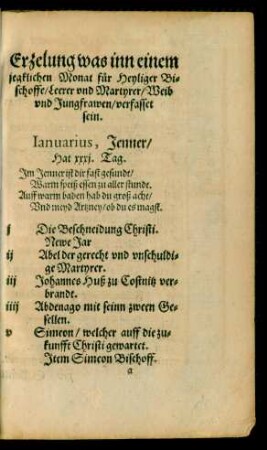 Erzelung was inn einem
jegklichen Monat für Heyliger Bi-
schoffe/Leerer vnd Martyrer/Weib
vnd Jungfrawen/verfasset
sein.
Ianuarius, Jenner/
Hat xxxj. Tag.
Im Jenner ist dir fast gesundt/
Warm speiß essen zu aller stundt.
Auff warm baden hab du groß acht/
Vnd meyd Artzney/ob du es magst.
j Die Beschneidung Christi.
Newe Jar
ij Abel der gerecht vnd vnschuldi-
ge Martyrer.
iij Johannes Huß zu Costnitz ver-
brandt.
iiij Abdenago mit seinn zween Ge-
sellen.
v Simeon/welcher auff die zu-
kunfft Christi gewartet.
Item Simeon Bischoff.
a